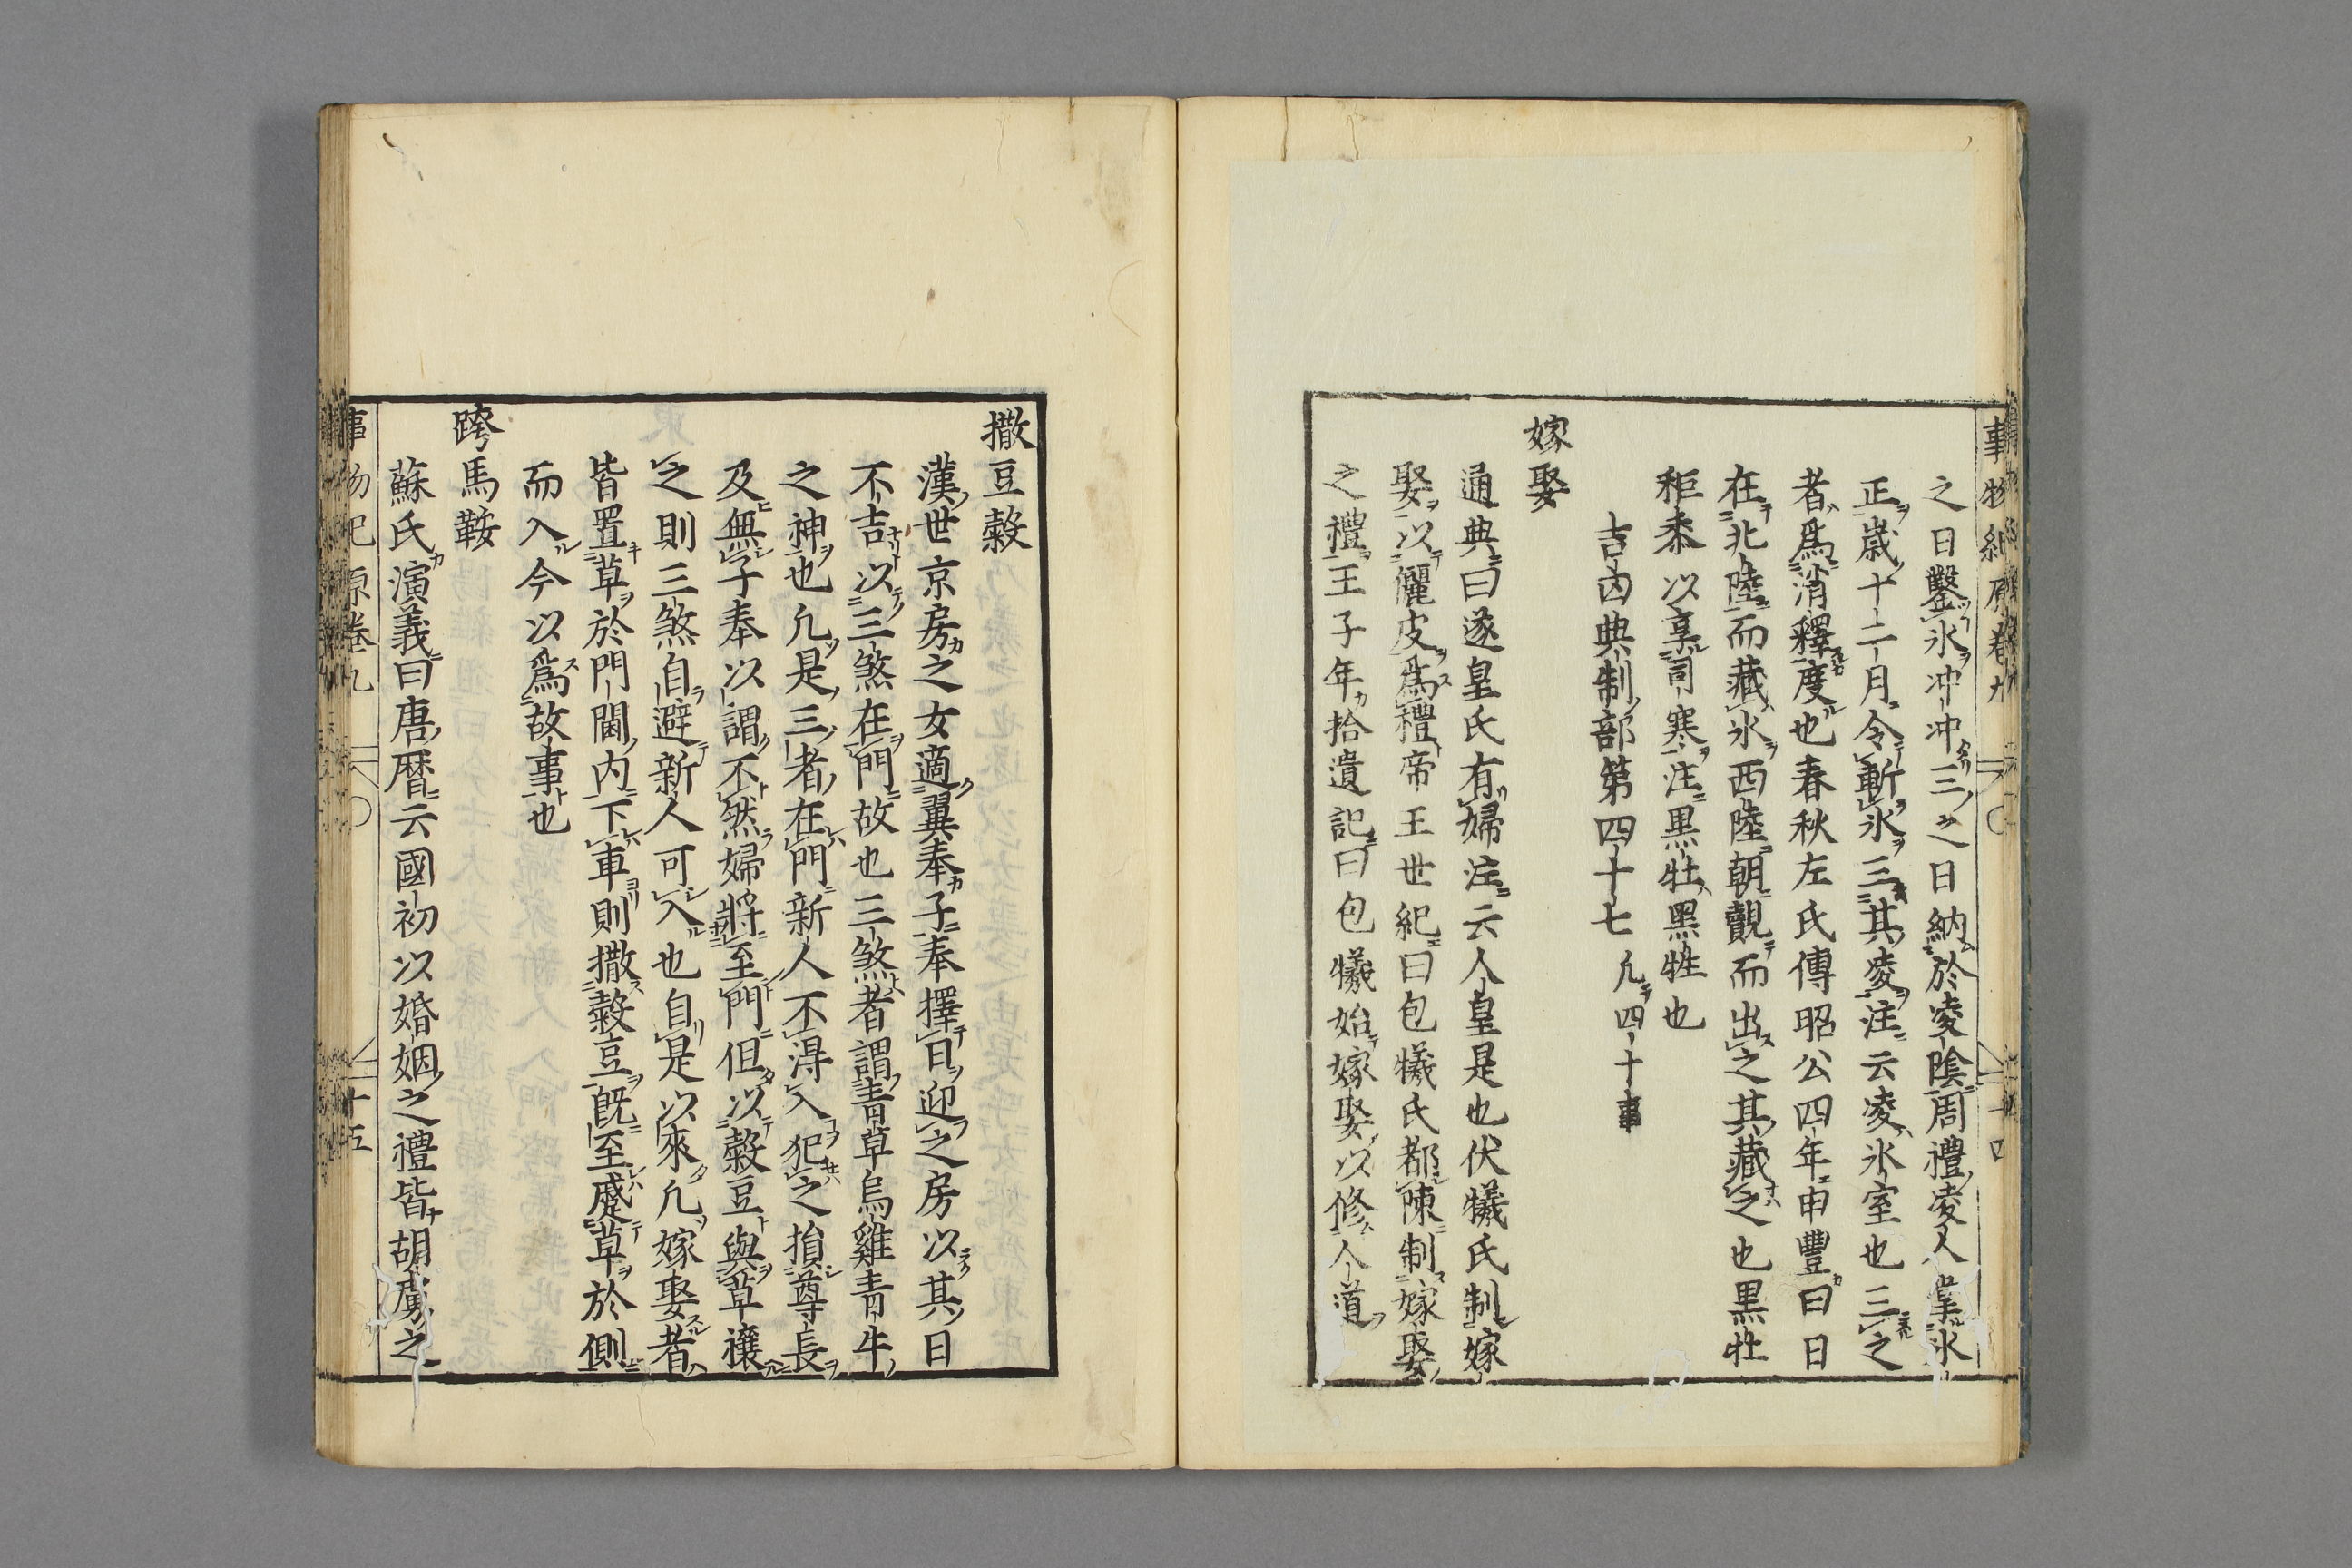 之日鑿氷冲冲三之日納於凌陰周禮凌人掌氷
正歳十二月令斬氷三其凌注云凌氷室也三之
者爲消釋度也春秋左氏傳昭公四年申豐曰日
在北陸而藏氷西陸朝覿而出之其藏之也黒牡
秬黍以享司寒注黒牡黑牲也
吉凶典制部第四十七 凡四十事
嫁娶
通典曰遂皇氏有婦注云人皇是也伏犧氏制嫁
娶以儷皮爲禮帝王世紀曰包犧氏都陳制嫁娶
之禮王子年拾遺記曰包犧始嫁娶以修人道
撒豆穀
漢世京房之女適翼奉子奉擇日迎之房以其日
不吉以三煞在門故也三煞者謂青草烏雞青牛
之神也凡是三者在門新人不得入犯之損尊長
及無子奉以謂不然婦將至門但以穀豆與草禳
之則三煞自避新人可入也自是以來凡嫁娶者
皆置草於門閫内下車則撒穀豆既至蹙草於側
而入今以爲故事也
跨馬鞍
蘇氏演義曰唐暦云國初以婚姻之禮皆胡虜之
事物紀原卷九 十五